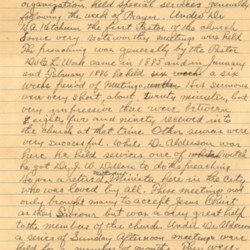 organization held special services generally
following the week of Prayer. Under Dr.
the first Pastor of the church
some very noteworthy meetings was held
The preaching was generally by the Pastor
Dr. G. L. Work came in 1885 and in January
and February 1886 he held six weeks a six
weeks period of meetings. His sermons
were very short, about twenty minutes, but
very impressive, there were between
eighty five and ninety received into
the church at that time. Other services were
very successful. While Dr. Alderson was
here he held services one of which
to get Dr. J. W. Allen, to do the preaching
He was a retired Minister here in the city
who was loved by all. These meetings not
only brought many to accept Jesus Christ
as their Saviour but was a very great help
to the members of the church. Under Dr.
a series of Sunday afternoons were